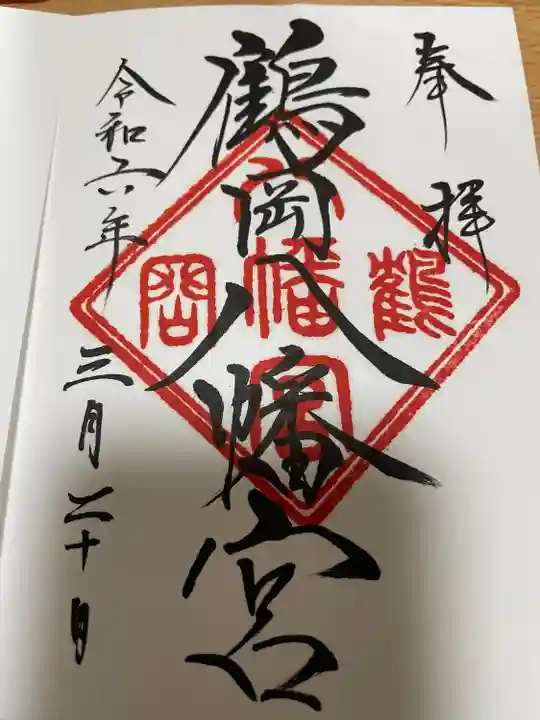 奉拝
鶴岡八幡宮
令和六年三月二十日
鶴岡八幡宮